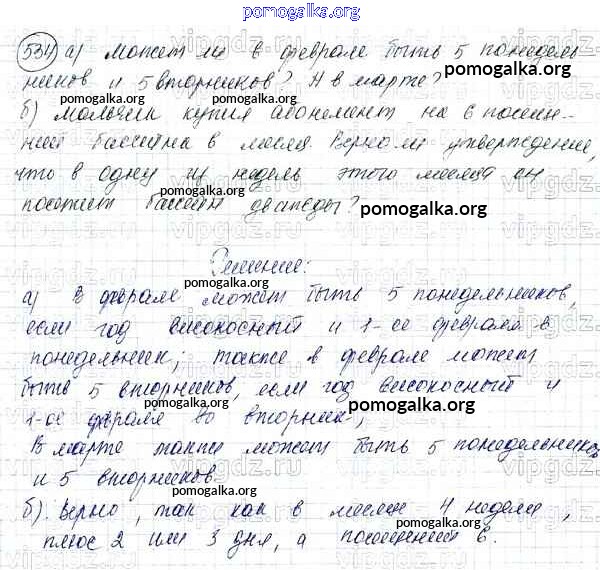 pomogalka.org
534 а) может ли в феврале быть 5 понедель-
ников и 5 вторников? А в марте?
pomogalka.org pomogalka.org
б) мальчик купил абонемент на 6 посеще-
ний бассейна в месяц. Верно ли утверждение,
pomogalka.org
что в одну из недель этого месяца он
посетит бассейн дважды? pomogalka.org
Решение:
pomogalka.org
а) В феврале может быть 5 понедельников,
если год високосный и 1-ое февраля в
pomogalka.org
понедельник; также в феврале может
быть 5 вторников, если год високосный и
pomogalka.org
1-ое февраля во вторник;
В марте также может быть 5 понедельников
pomogalka.org
и 5 вторников.
б). Верно, так как в месяце 4 недели,
pomogalka.org
плюс 2 или 3 дня, а посещений 6.